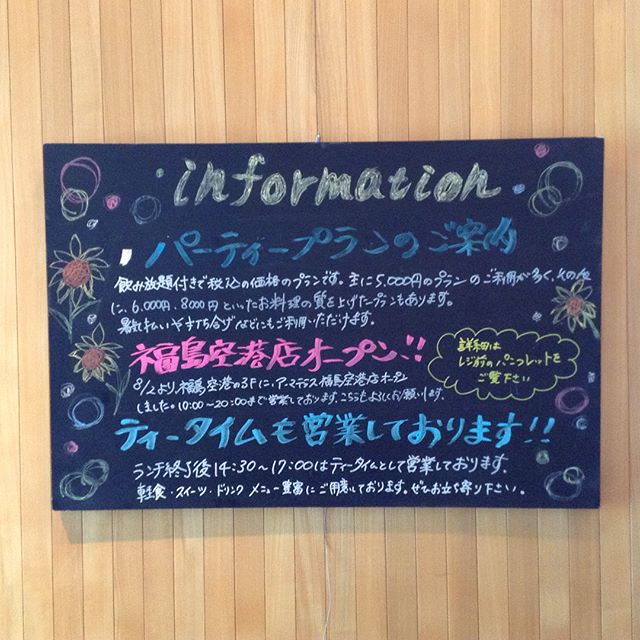 information
パーティープランのご案内
飲み放題付きで税込の価格のプランです。主に5,000円のプランのご利用が多く、その他
に、6,000円、8,000円といったお料理の質を上げたプランもあります。
暑気払いや打ち合げなどにもご利用いただけます。
福島空港店オープン!!
詳細は
レジ前のパンフレットを
ご覧下さい
8/2より、福島空港の3Fに、アマテラス福島空港店オープン
しました。10:00〜20:00まで営業しております。こちらもよろしくお願いします。
ティータイムも営業しております!!
ランチ終了後14:30〜17:00はティータイムとして営業しております。
軽食・スイーツ・ドリンク メニュー豊富にご用意しております。ぜひお立ち寄り下さい。